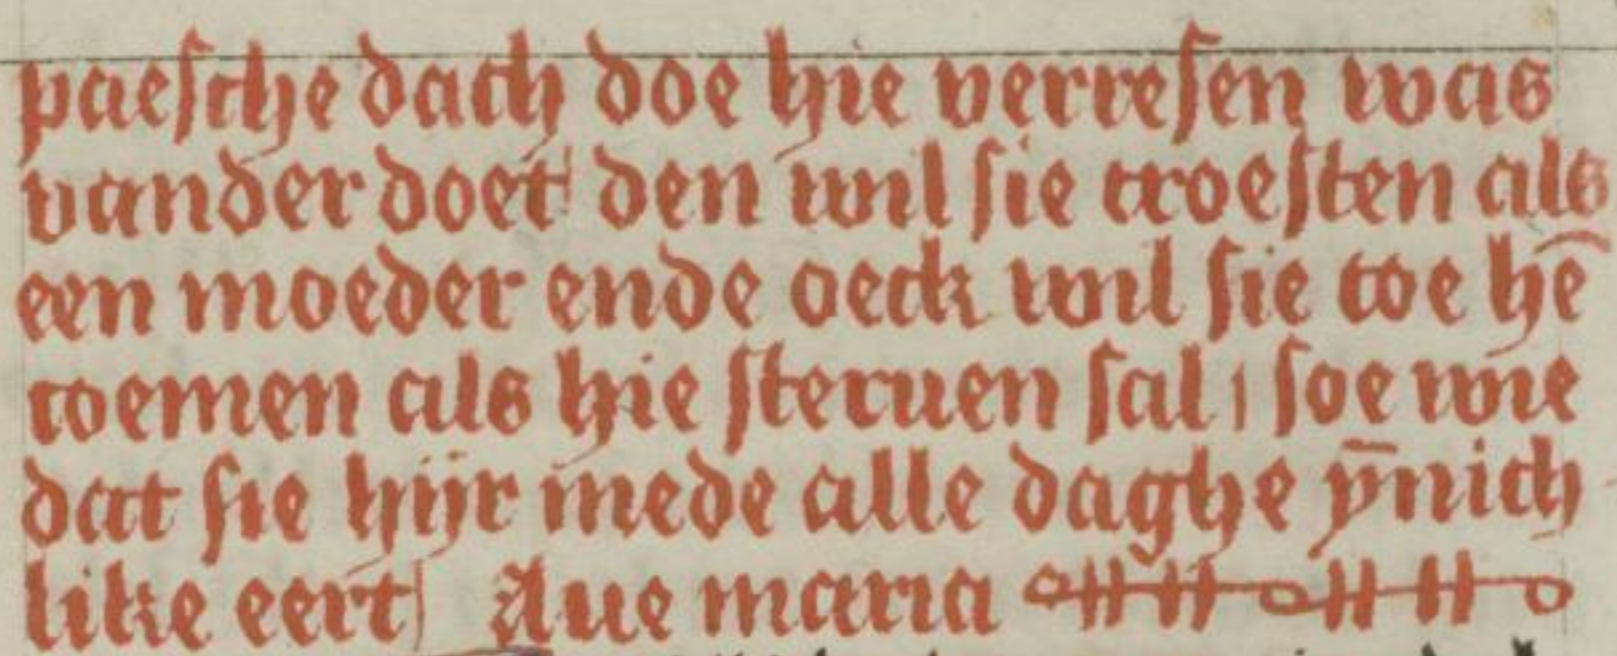 paesche dach doe hie verresen was
vander doet den wil sie troesten als
een moeder ende oeck wil sie toe hē
comen als hie steruen sal / soe wie
dat sie hijr mede alle daghe ȳnich
like eert / Aue maria